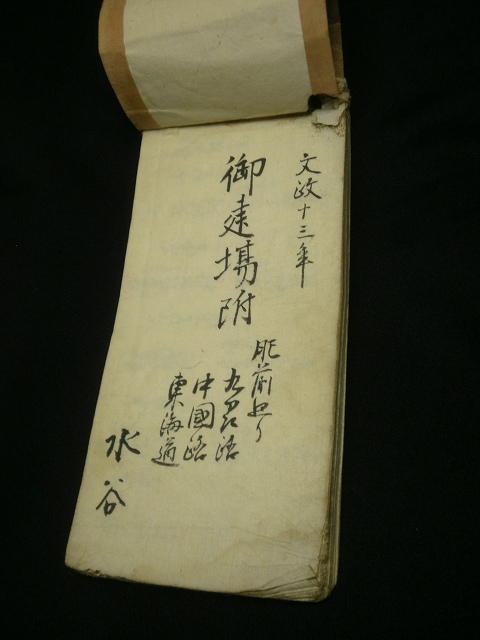 文政十三年
御建場附
肥前ゟ
九州路
中國路
東海道
水谷